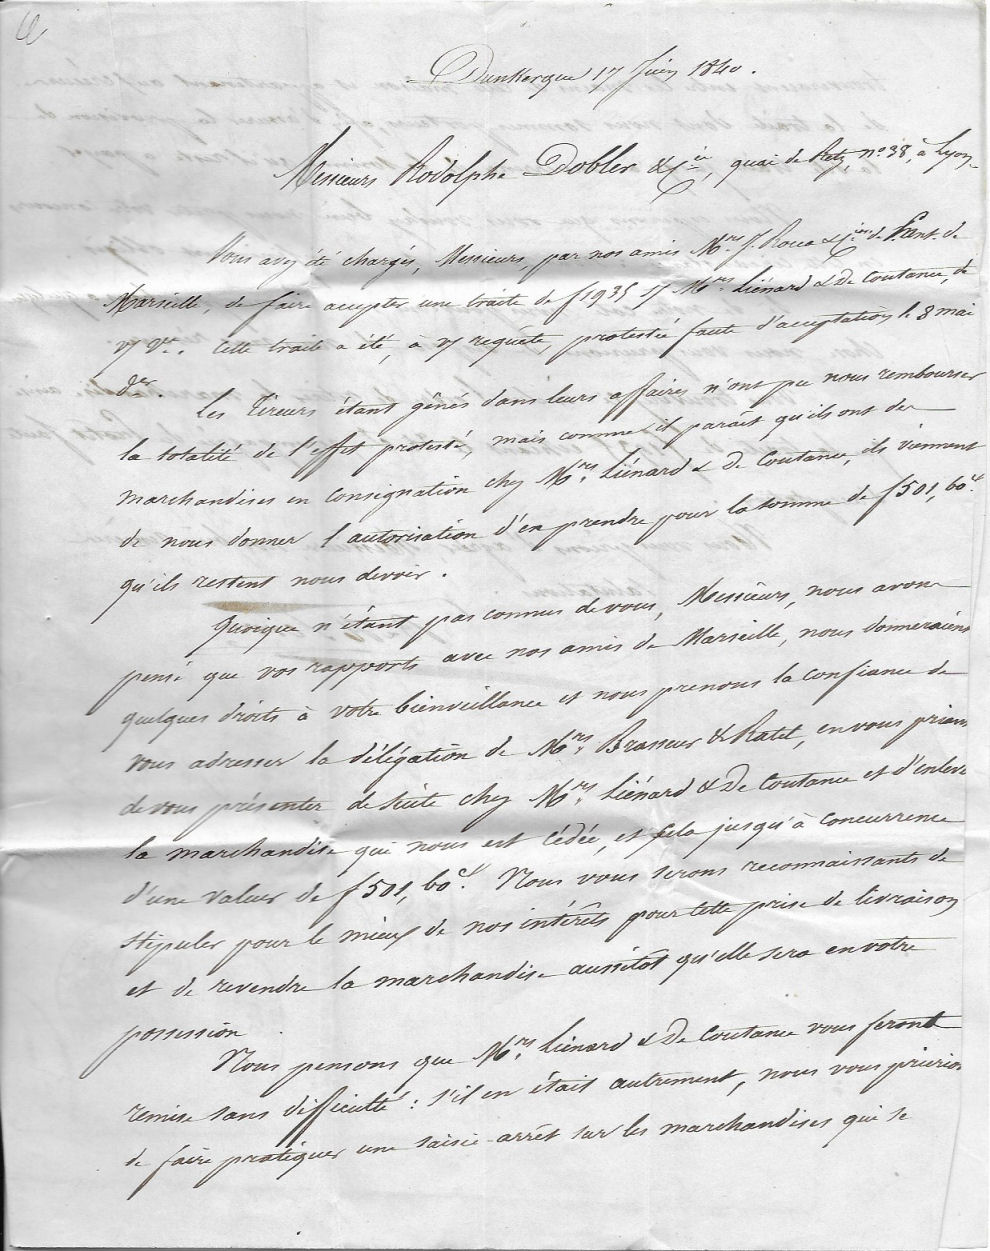 Dunkerque 17 Juin 1840.
Messieurs Rodolphe Dobler & Cie, quai de Retz no 38, à Lyon
Vous avez été chargés, Messieurs, par nos amis Mrs J. Roux & Cie de
Marseille, de faire accepter une traite de f 1935 s/ Mrs Liénard & De Coutance, de
v/ Ve. Cette traite a été, à v/ requête, protestée faute d'acceptation le 8 mai
der.
Les tireurs étant gênés dans leurs affaires n'ont pu nous rembourser
la totalité de l'effet protesté, mais comme il paraît qu'ils ont des
marchandises en consignation chez Mrs Liénard & De Coutance, ils viennent
de nous donner l'autorisation d'en prendre pour la somme de f 501,60 c.
qu'ils restent nous devoir.
Quoique n'étant pas connus de vous, Messieurs, nous avons
pensé que vos rapports avec nos amis de Marseille, nous donneraient
quelques droits à votre bienveillance et nous prenons la confiance de
vous adresser la délégation de Mrs Brasseur & Ratel, en vous priant
de vous présenter de suite chez Mrs Liénard & De Coutance et d'enlever
la marchandise qui nous est cédée, et cela jusqu'à concurrence
d'une valeur de f 501,60 c. Nous vous serons reconnaissants de
stipuler pour le mieux de nos intérêts pour cette prise de livraison
et de revendre la marchandise aussitôt qu'elle sera en votre
possession
Nous pensons que Mrs Liénard & De Coutance vous feront
remise sans difficulté : s'il en était autrement, nous vous prierions
de faire pratiquer une saisie-arrêt sur les marchandises qui se